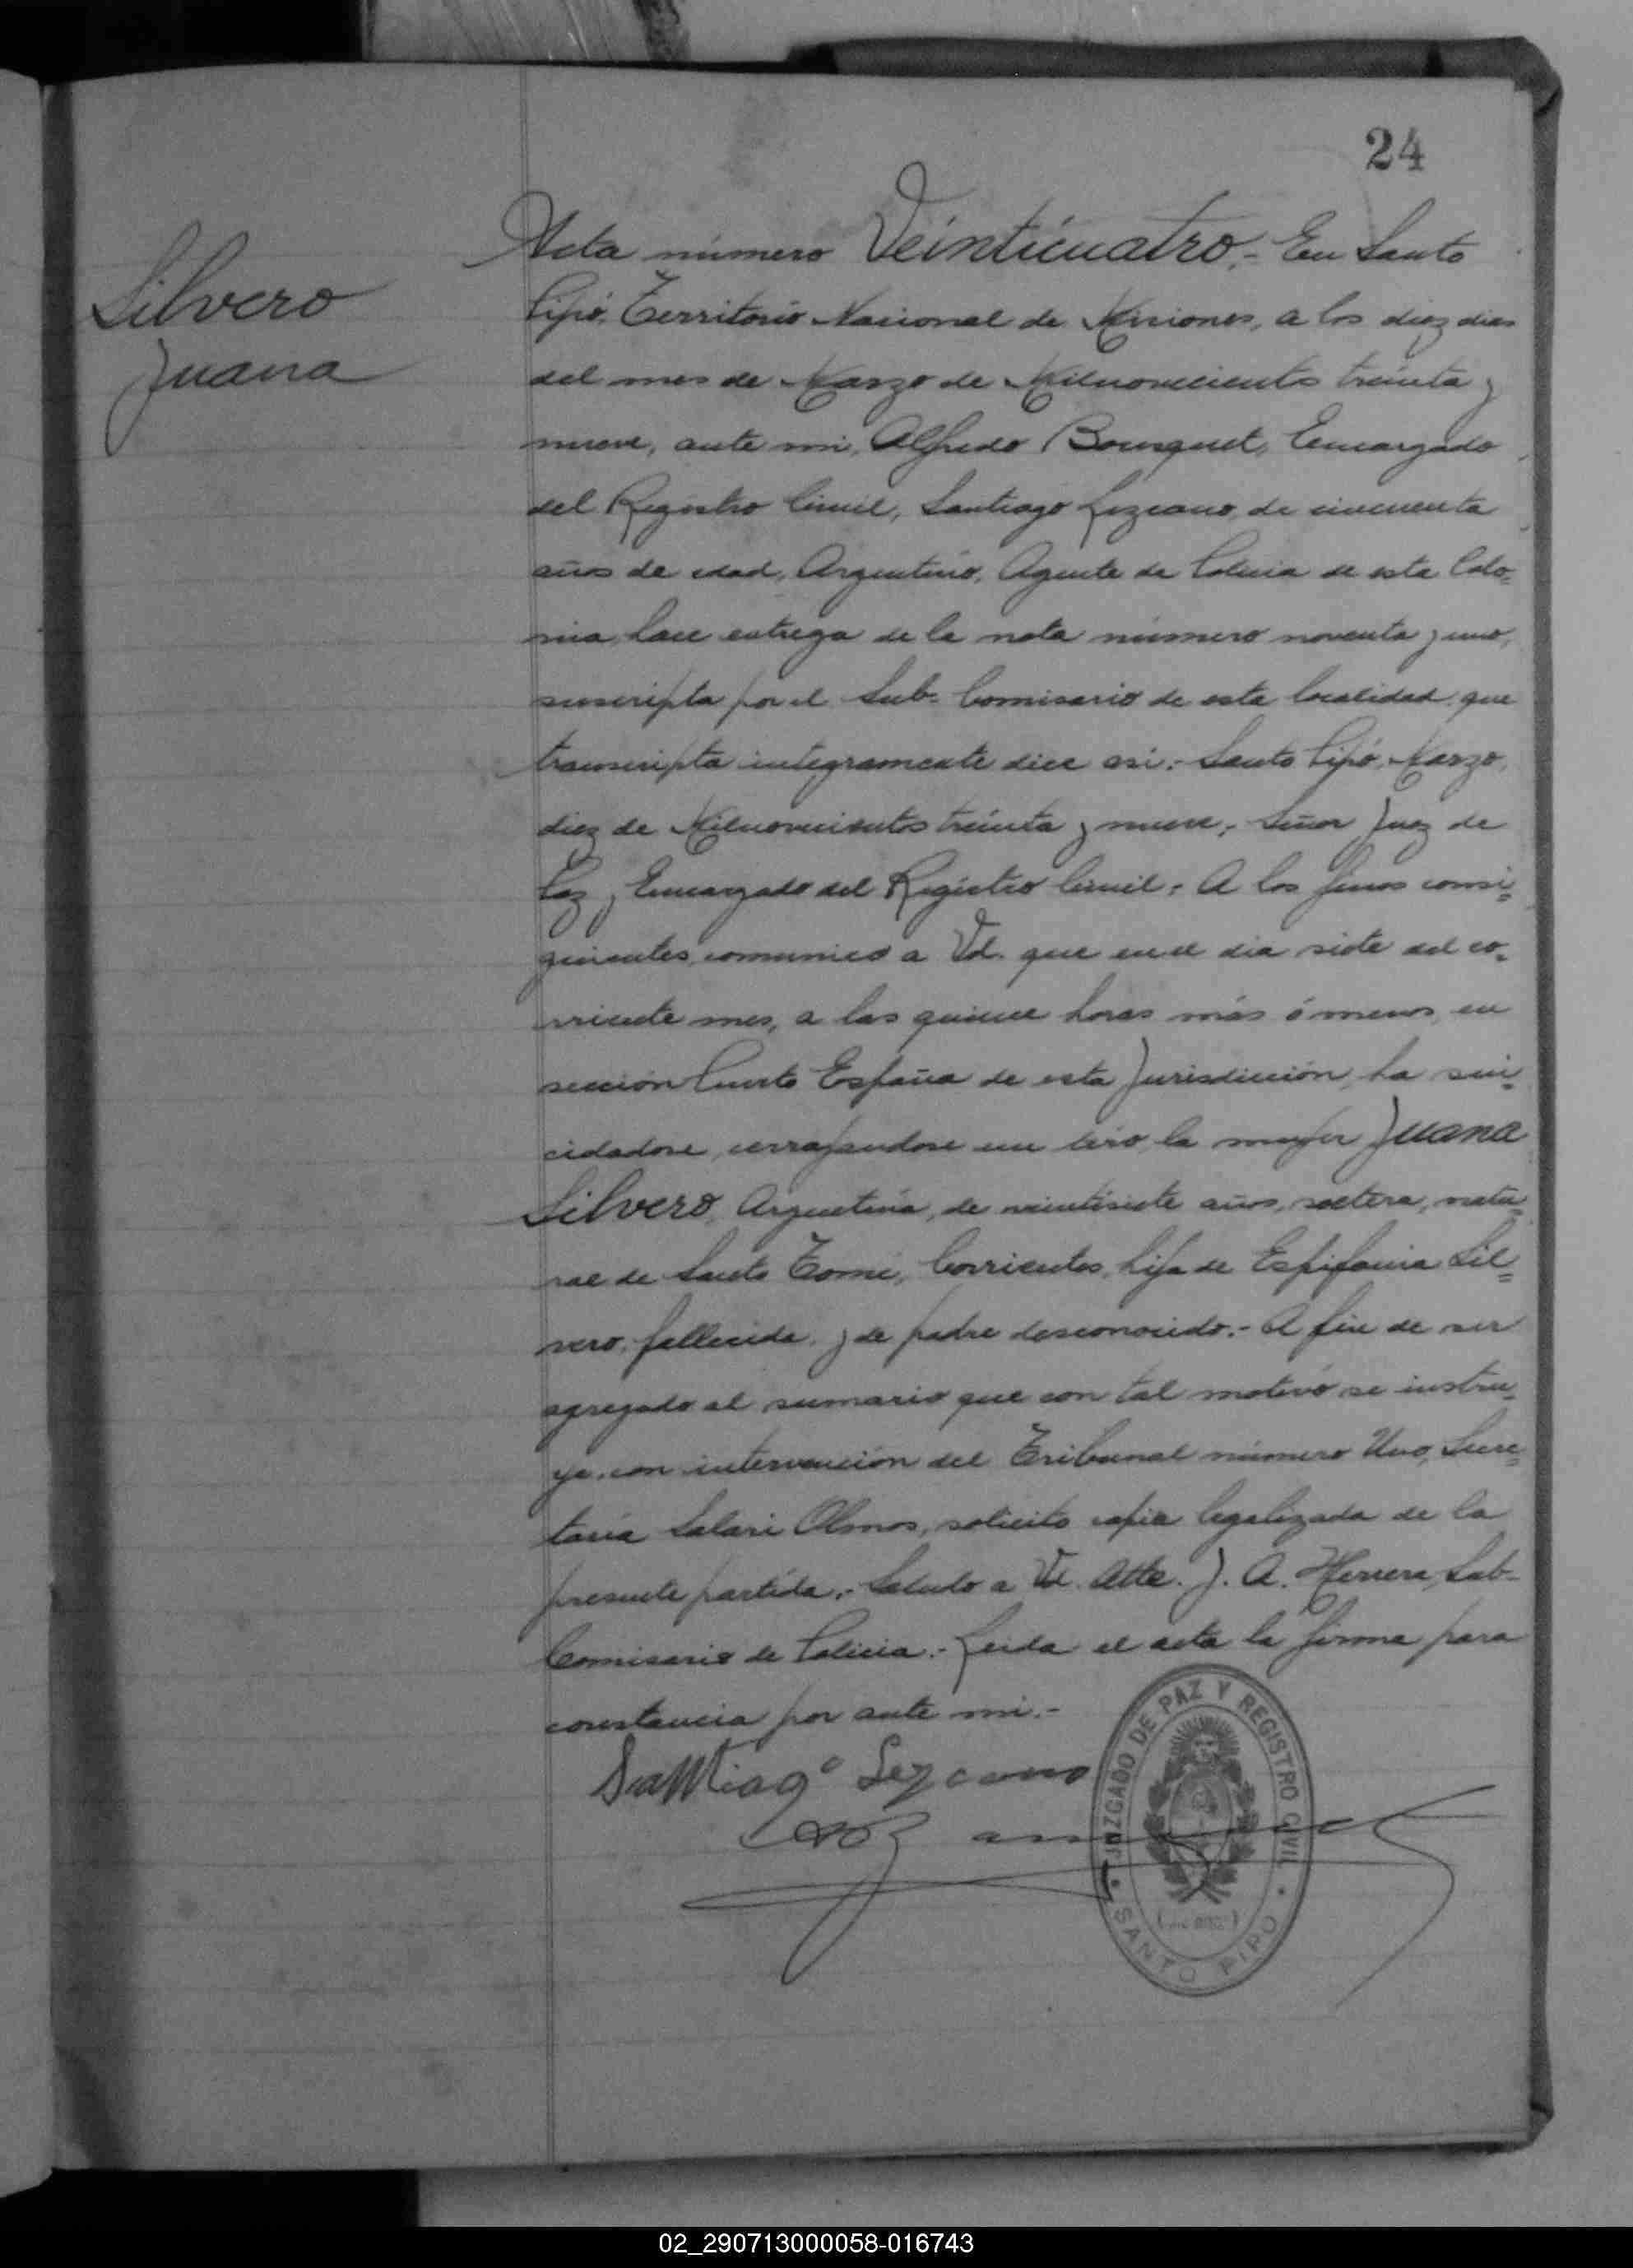 24
Silvero
Juana
Acta número Veinticuatro.- En Santo
Pipó, Territorio Nacional de Misiones, a los diez dias
del mes de Marzo de Milnovecientos treinta y
nueve, ante mi, Alfredo Bousquet, Encargado
del Registro Civil, Santiago Lezcano, de cincuenta
años de edad, Argentino, Agente de Policia de esta Colo=
nia, hace entrega de la nota número noventa y uno,
suscripta por el Sub-Comisario de esta localidad, que
transcripta integramente dice asi:- Santo Pipó, Marzo,
diez de Milnovecientos treinta y nueve.- Señor Juez de
Paz y Encargado del Registro Civil:- A los fines consi=
guientes comunico a Vd. que en el dia siete del co=
rriente mes, a las quince horas más ó menos, en
sección Puerto España de esta Jurisdicción, ha sui=
cidadose, cerrajandose un tiro, la mujer Juana
Silvero, Argentina, de veintisiete años, soltera, natu=
ral de Santo Tomé, Corrientes, hija de Espifania Sil=
vero, fallecida, y de padre desconocido.- A fin de ser
agregado al sumario que con tal motivo se instru=
ye, con intervención del Tribunal número Uno, Secre=
taria Salari Olmos, solicito copia legalizada de la
presente partida.- Saludo a Vd. Atte. J. A. Herrera, Sub-
Comisario de Policia.- Leida el acta la firma para
constancia por ante mi.-
Santiago Lezcano
JUZGADO DE PAZ Y REGISTRO CIVIL
SANTO PIPO
02_290713000058-016743